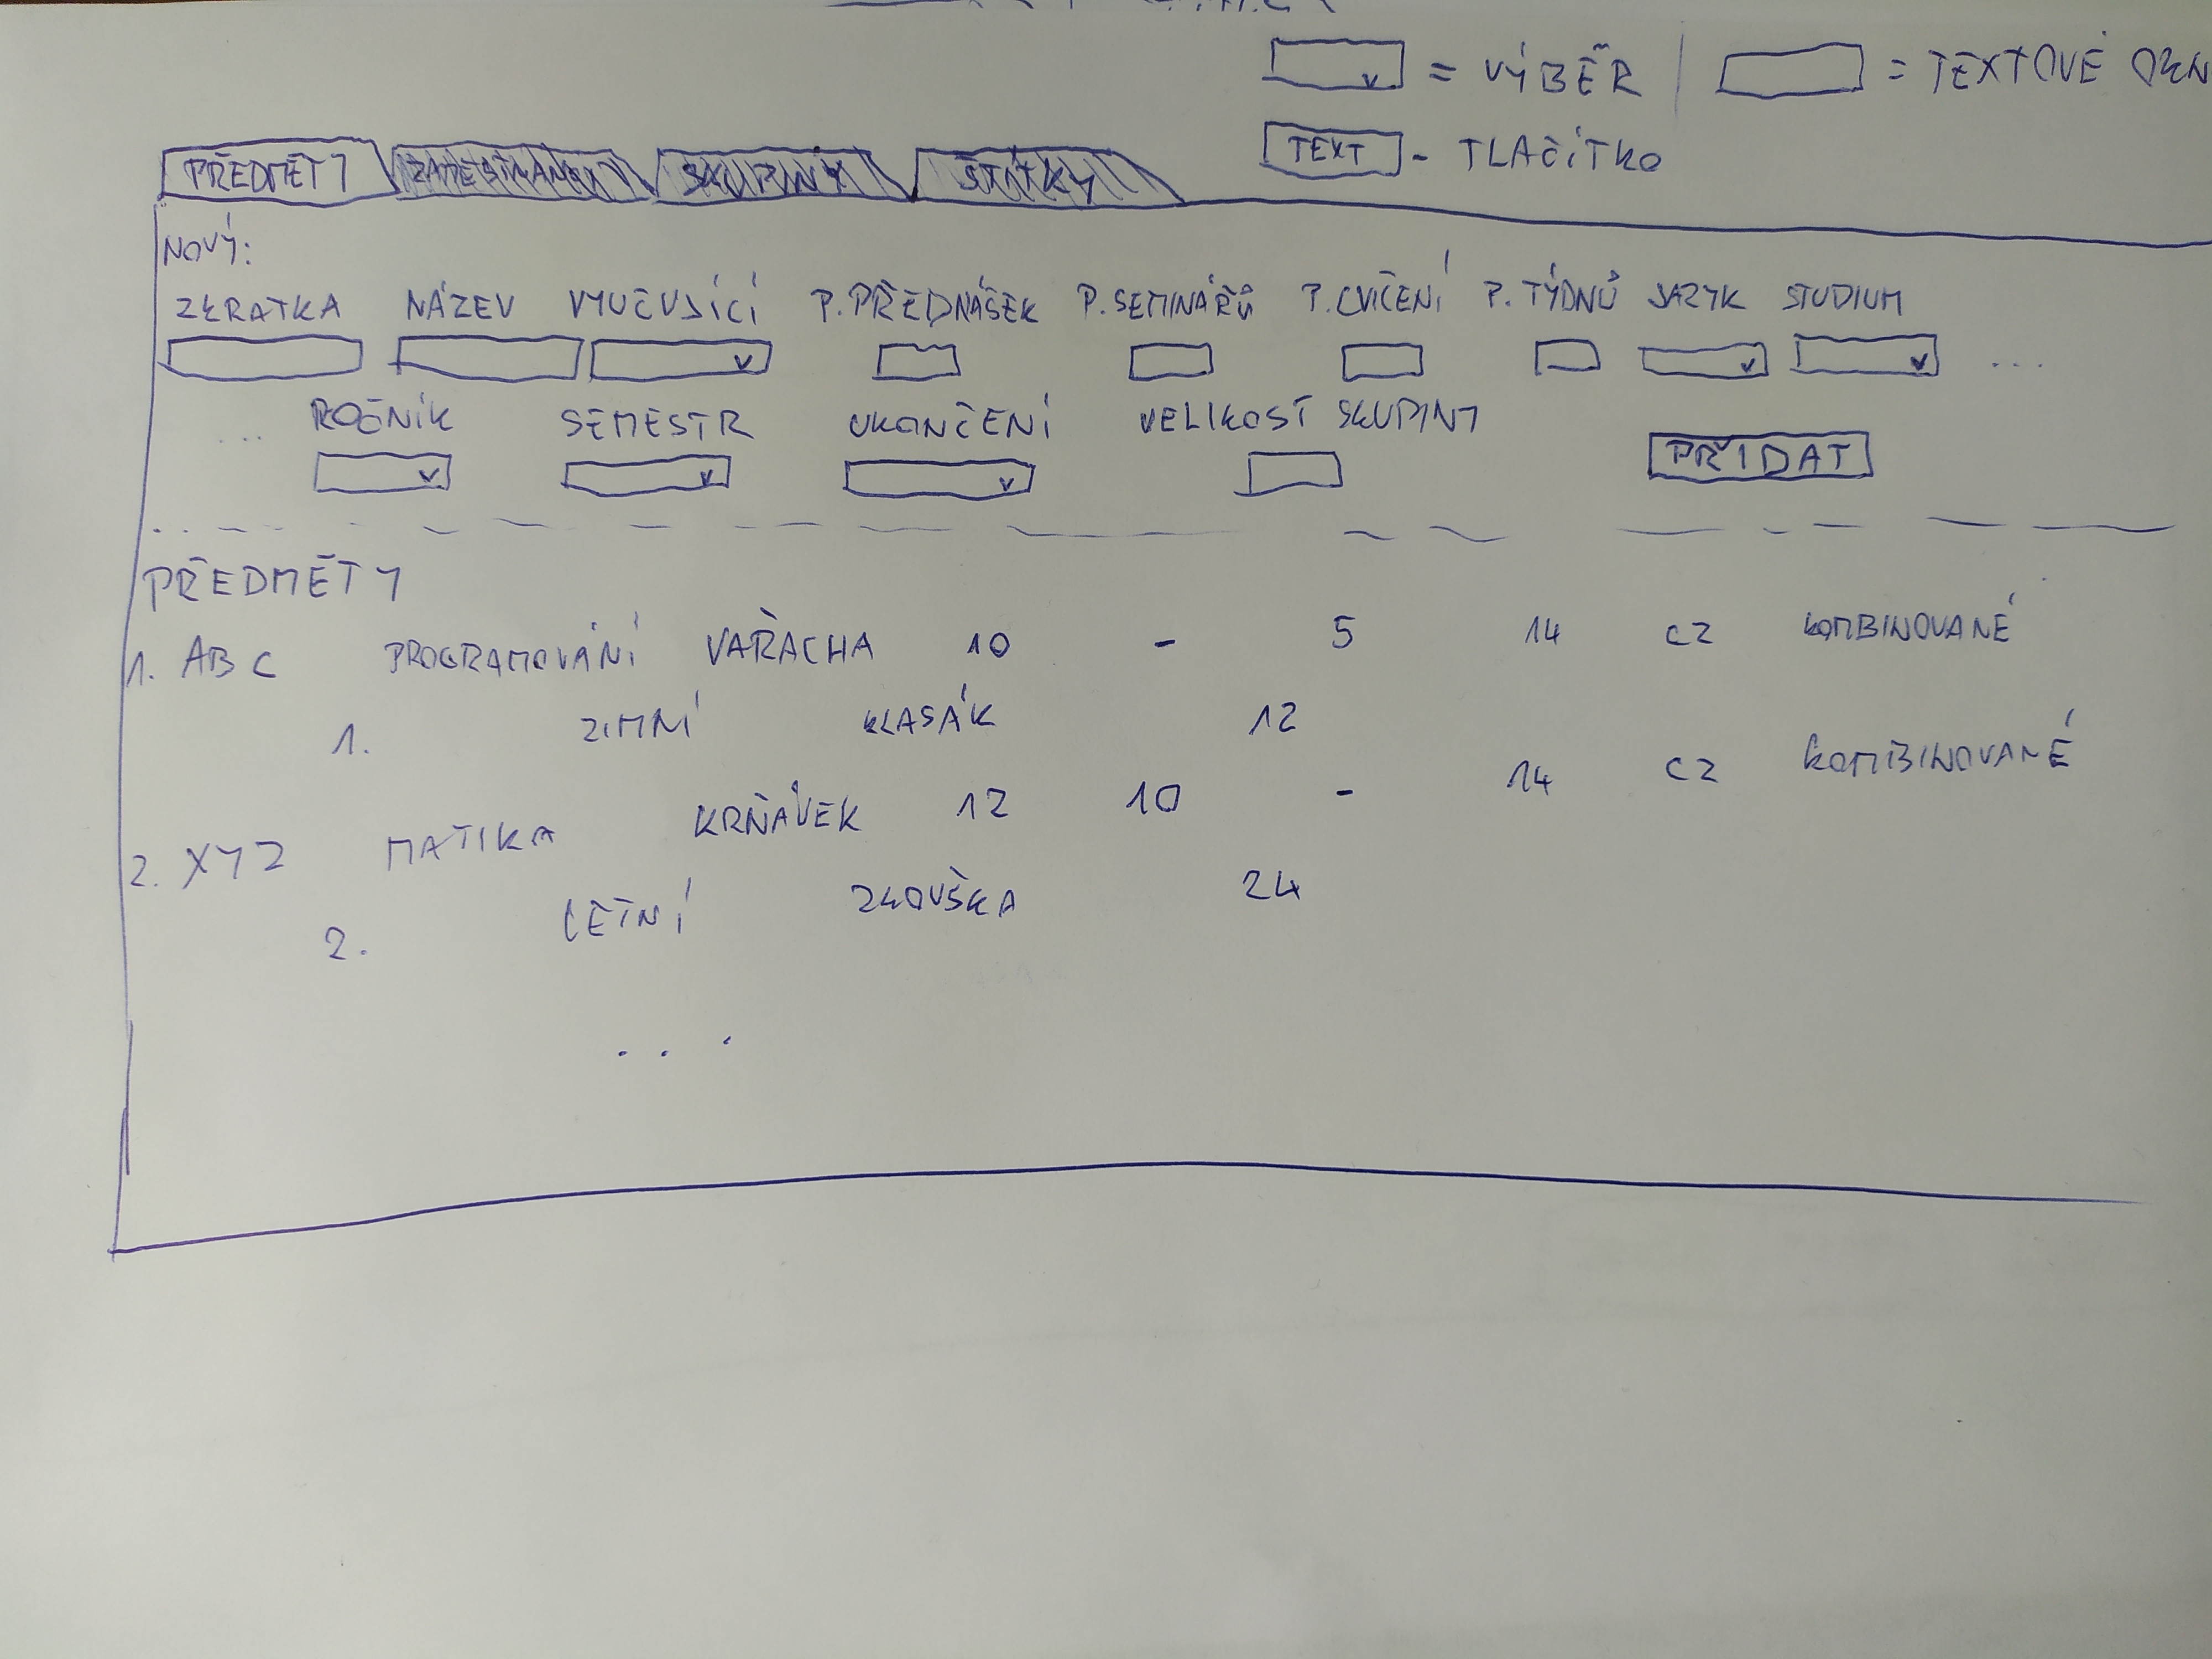 = VÝBĚR | = TEXTOVÉ OKN
TEXT - TLAČÍTKO
PŘEDMĚTY ZAMĚSTNANCI SKUPINY ŠTÍTKY
NOVÝ:
ZKRATKA NÁZEV VYUČUJÍCÍ P. PŘEDNÁŠEK P. SEMINÁŘŮ P. CVIČENÍ P. TÝDNŮ JAZYK STUDIUM
...
... ROČNÍK SEMESTR UKONČENÍ VELIKOST SKUPINY
PŘIDAT
PŘEDMĚTY
1. ABC PROGRAMOVÁNÍ VAŘACHA 10 - 5 14 CZ KOMBINOVANÉ
1. ZIMNÍ KLASÁK 12
2. XYZ MATIKA KRŇÁVEK 12 10 - 14 CZ KOMBINOVANÉ
2. LETNÍ ZKOUŠKA 24
...